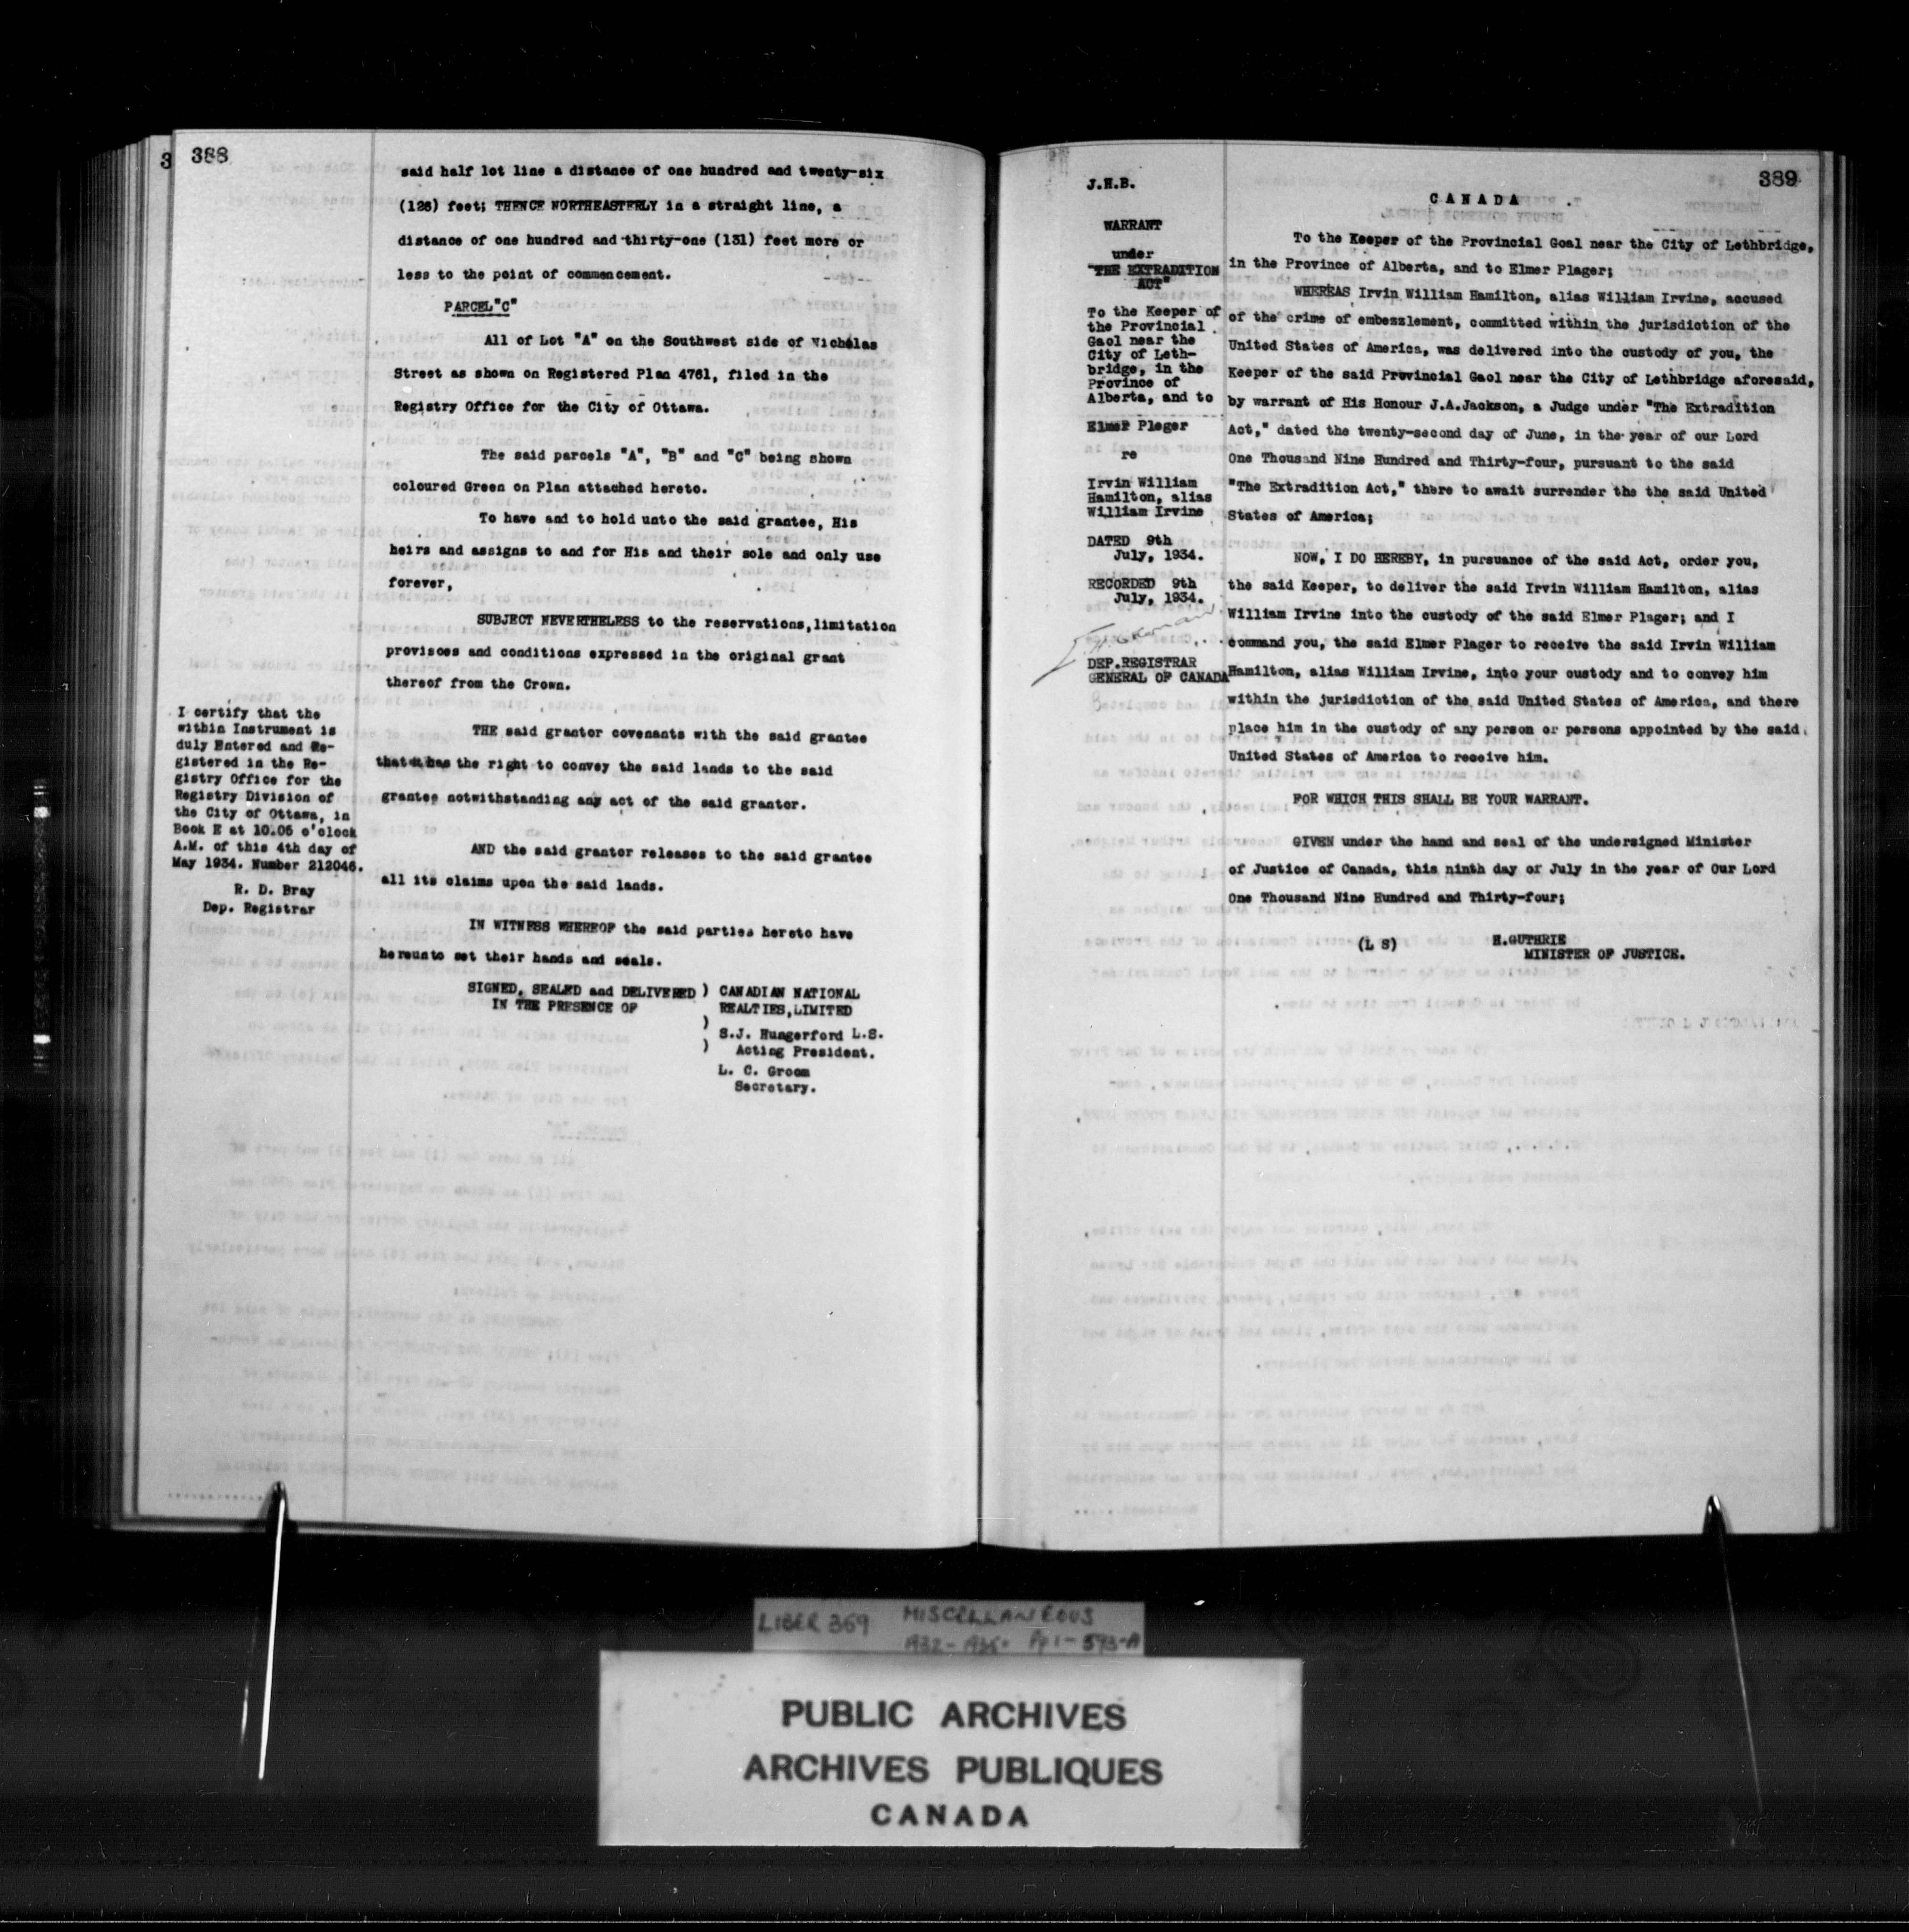 388
said half lot line a distance of one hundred and twenty-six
(126) feet; THENCE NORTHEASTERLY in a straight line, a
distance of one hundred and thirty-one (131) feet more or
less to the point of commencement.
PARCEL "C"
All of Lot "A" on the Southwest side of Nicholas
Street as shown on Registered Plan 4761, filed in the
Registry Office for the City of Ottawa.
The said parcels "A", "B" and "C" being shown
coloured Green on Plan attached hereto.
To have and to hold unto the said grantee, His
heirs and assigns to and for His and their sole and only use
forever,
SUBJECT NEVERTHELESS to the reservations, limitation
provisoes and conditions expressed in the original grant
thereof from the Crown.
THE said grantor covenants with the said grantee
that it has the right to convey the said lands to the said
grantee notwithstanding any act of the said grantor.
AND the said grantor releases to the said grantee
all its claims upon the said lands.
IN WITNESS WHEREOF the said parties hereto have
hereunto set their hands and seals.
SIGNED, SEALED and DELIVERED ) CANADIAN NATIONAL
IN THE PRESENCE OF REALTIES, LIMITED
)
S.J. Hungerford L.S.
) Acting President.
L. C. Groom
Secretary.
I certify that the
within Instrument is
duly Entered and Re-
gistered in the Re-
gistry Office for the
Registry Division of
the City of Ottawa, in
Book E at 10.05 o'clock
A.M. of this 4th day of
May 1934. Number 212046.
R. D. Bray
Dep. Registrar
389
J.H.B.
WARRANT
under
"THE EXTRADITION
ACT"
To the Keeper of
the Provincial
Gaol near the
City of Leth-
bridge, in the
Province of
Alberta, and to
Elmer Plager
re
Irvin William
Hamilton, alias
William Irvine
DATED 9th
July, 1934.
RECORDED 9th
July, 1934.
DEP. REGISTRAR
GENERAL OF CANADA
CANADA
To the Keeper of the Provincial Goal near the City of Lethbridge,
in the Province of Alberta, and to Elmer Plager;
WHEREAS Irvin William Hamilton, alias William Irvine, accused
of the crime of embezzlement, committed within the jurisdiction of the
United States of America, was delivered into the custody of you, the
Keeper of the said Provincial Gaol near the City of Lethbridge aforesaid,
by warrant of His Honour J.A.Jackson, a Judge under "The Extradition
Act," dated the twenty-second day of June, in the year of our Lord
One Thousand Nine Hundred and Thirty-four, pursuant to the said
"The Extradition Act," there to await surrender the the said United
States of America;
NOW, I DO HEREBY, in pursuance of the said Act, order you,
the said Keeper, to deliver the said Irvin William Hamilton, alias
William Irvine into the custody of the said Elmer Plager; and I
command you, the said Elmer Plager to receive the said Irvin William
Hamilton, alias William Irvine, into your custody and to convey him
within the jurisdiction of the said United States of America, and there
place him in the custody of any person or persons appointed by the said
United States of America to receive him.
FOR WHICH THIS SHALL BE YOUR WARRANT.
GIVEN under the hand and seal of the undersigned Minister
of Justice of Canada, this ninth day of July in the year of Our Lord
One Thousand Nine Hundred and Thirty-four;
(L S) H.GUTHRIE
MINISTER OF JUSTICE.
LIBER 369 MISCELLANEOUS
1932-1935 Pp 1-593-A
PUBLIC ARCHIVES
ARCHIVES PUBLIQUES
CANADA